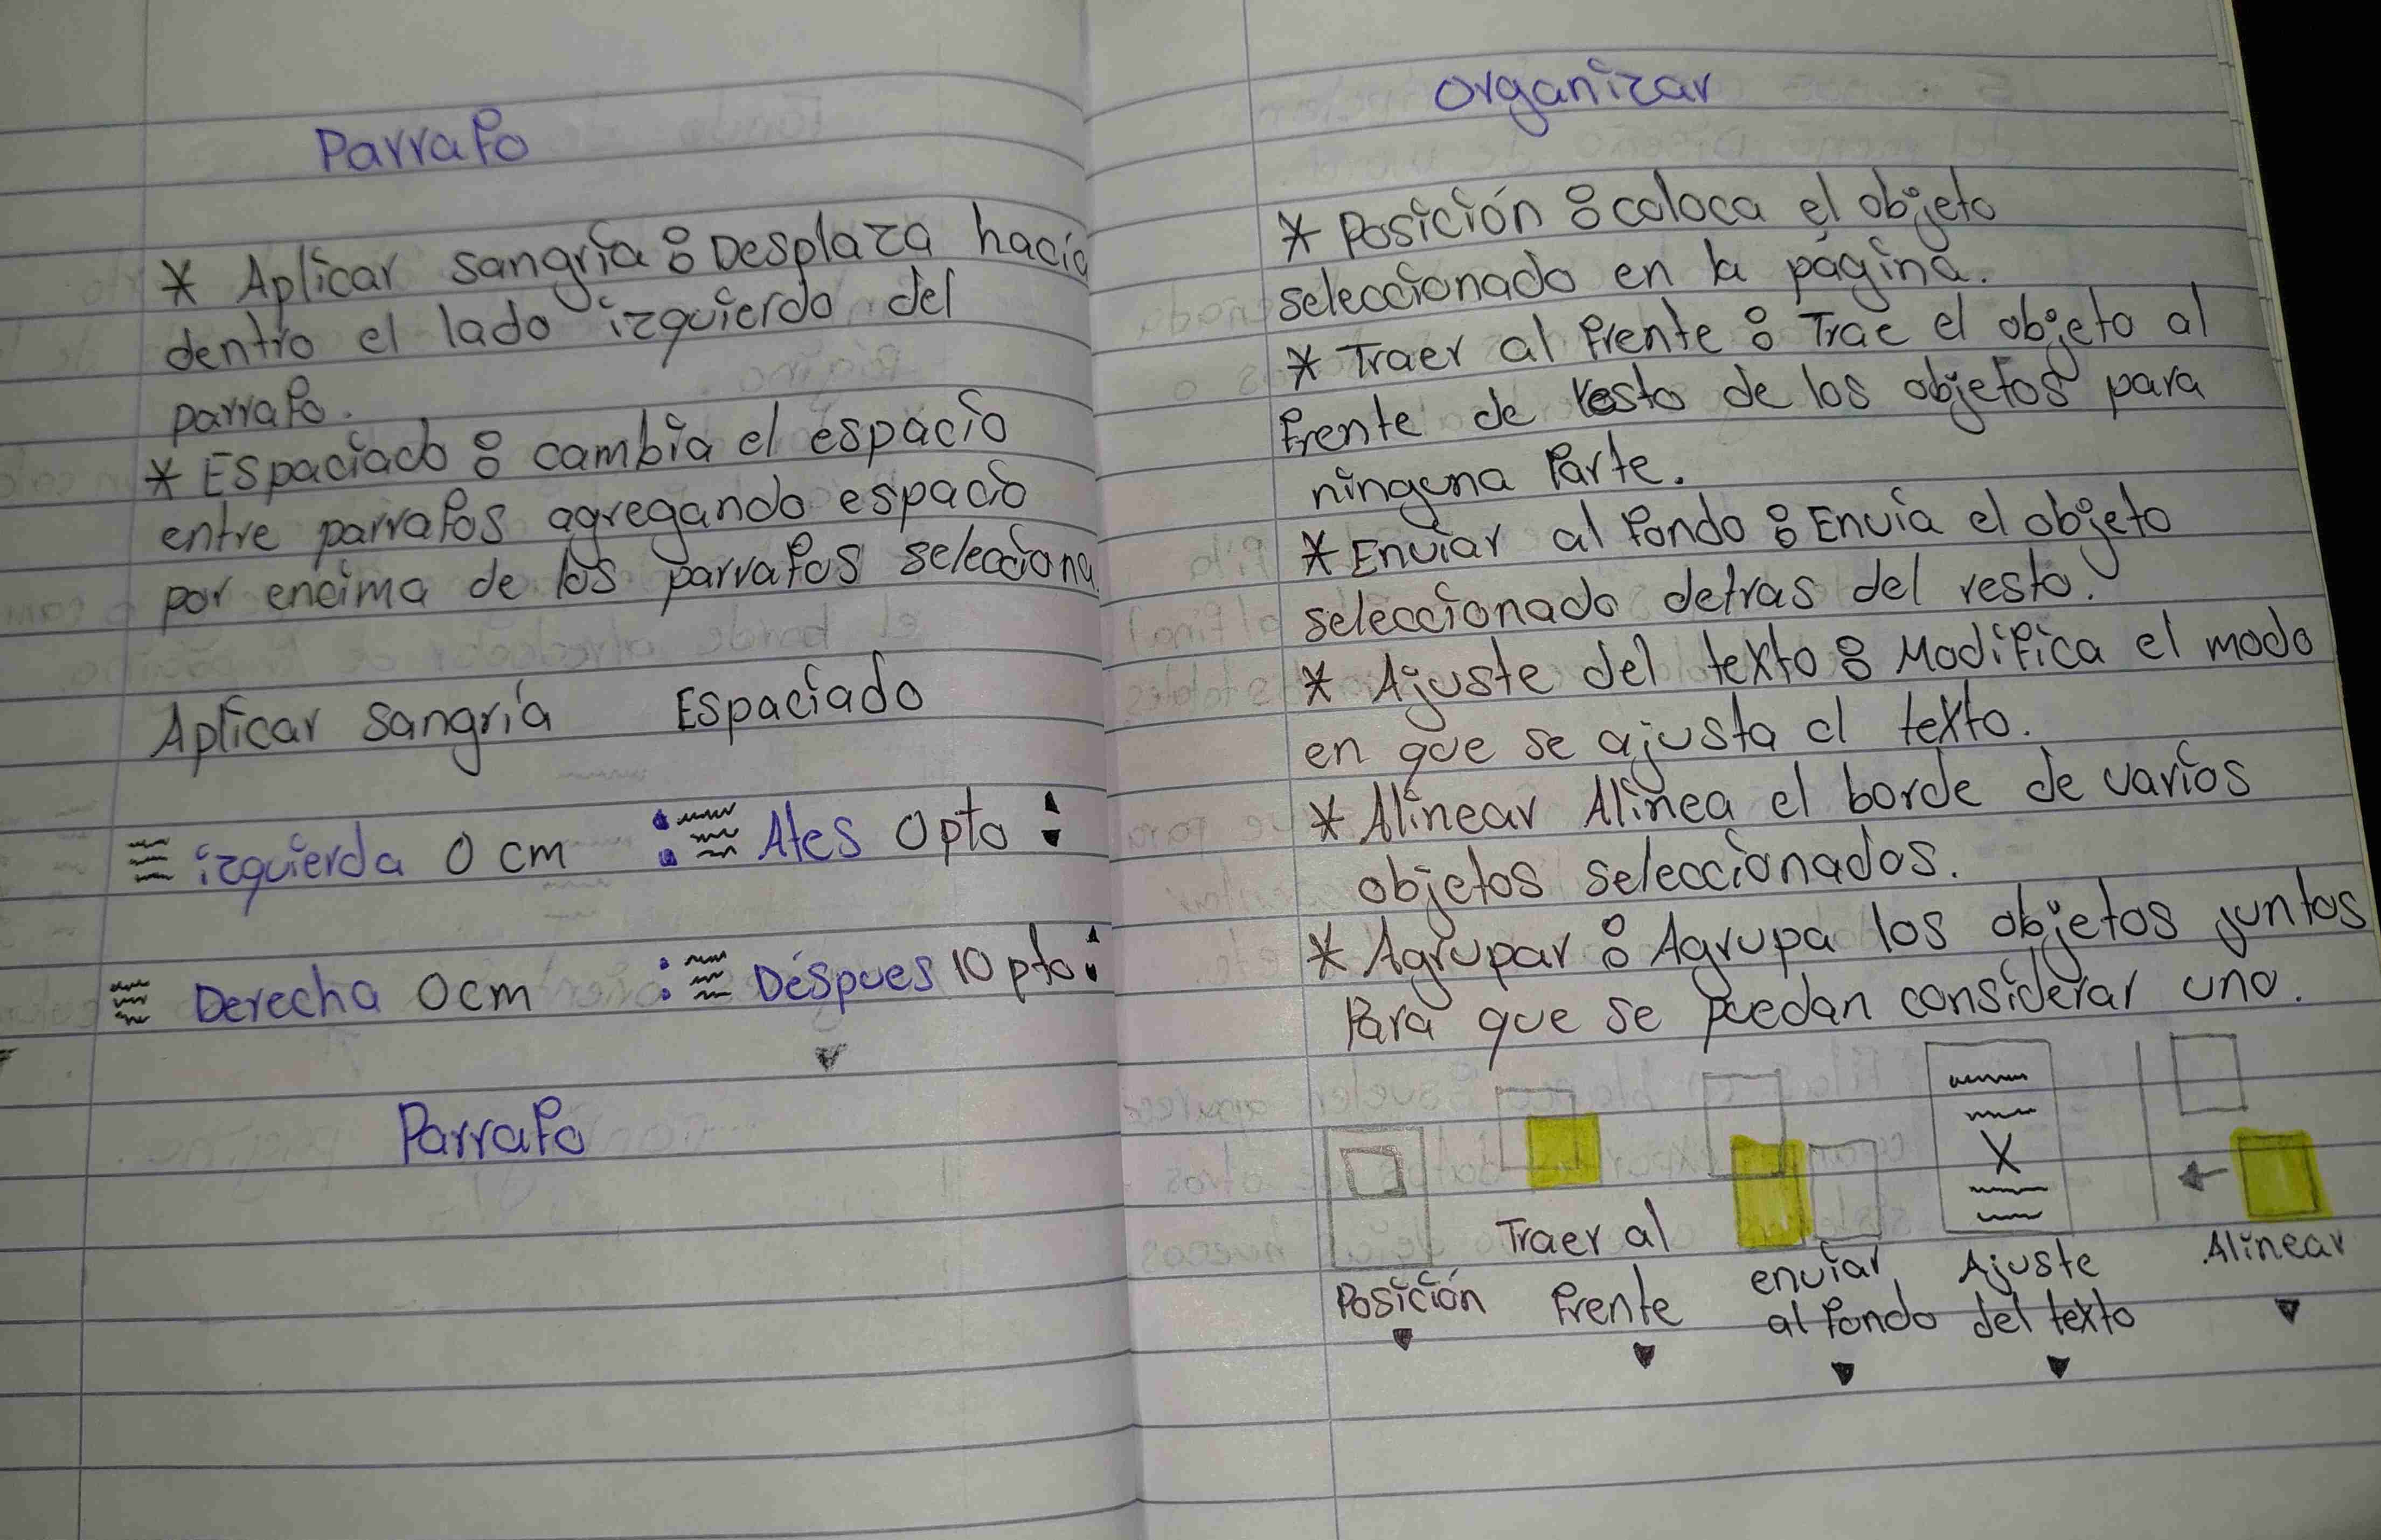 Parrafo
* Aplicar sangría: Desplaza hacia
dentro el lado izquierdo del
parrafo.
* Espaciado: cambia el espacio
entre parrafos agregando espacio
por encima de los parrafos selecciona
Aplicar sangría Espaciado
izquierda 0 cm Ates 0 pto
Derecha 0cm Déspues 10 pto
Parrafo
organizar
* Posición: coloca el objeto
seleccionado en la página.
* Traer al frente: Trae el objeto al
frente de resto de los objetos para
ninguna Parte.
* Enviar al fondo: Envia el objeto
seleccionado detras del resto.
* Ajuste del texto: Modifica el modo
en que se ajusta el texto.
* Alinear Alinea el borde de varios
objetos seleccionados.
* Agrupar: Agrupa los objetos juntos
Para que se puedan considerar uno.
X
Posición Traer al
frente enviar
al fondo Ajuste
del texto Alinear